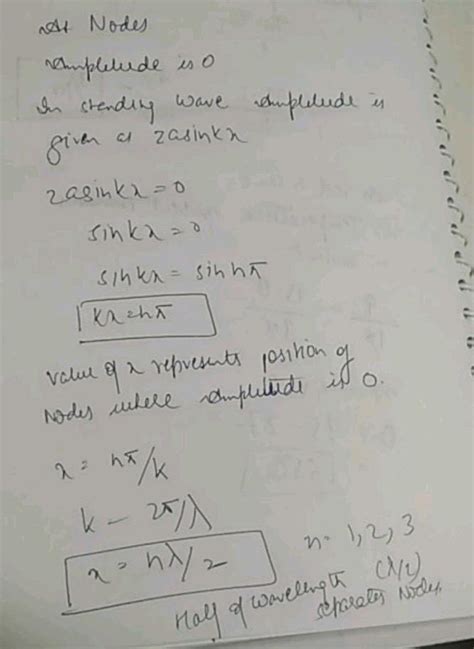 At Nodes
Amplitude is 0
In standing wave amplitude is
given as 2asinkx
2asinkx = 0
sinkx = 0
sinkx = sin nπ
kx = nπ
Value of x represents position of
Nodes where amplitude is 0.
x = nπ/k
k - 2π/λ
x = nλ/2
n = 1, 2, 3
Half of wavelength (λ/2)
separates Nodes.